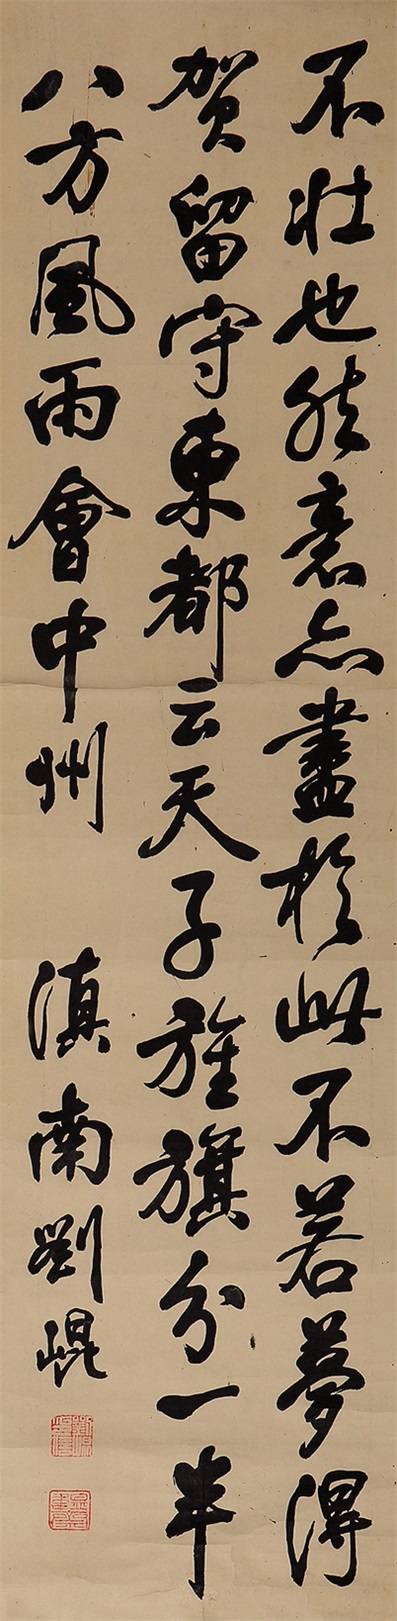 不壯也然意亦盡於此不若夢得
賀留守東都云天子旌旗分一半
八方風雨會中州
滇南劉崐